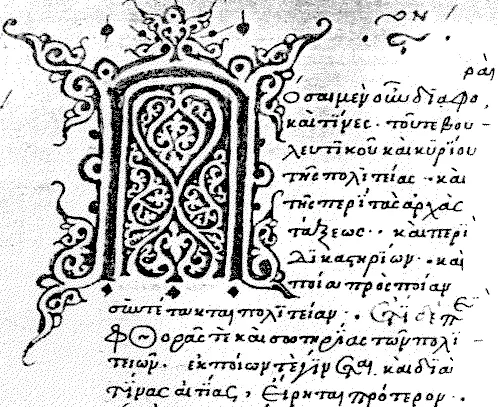 Πόσαι μὲν οὖν διαφοραὶ
καὶ τίνες· τοῦ τε βου-
λευτικοῦ καὶ κυρίου
τῆς πολιτείας· καὶ
τῆς περὶ τὰς ἀρχὰς
τάξεως· καὶ περὶ
δικαστηρίων· καὶ
ποία πρὸς ποίαν
συντέτακται πολιτείαν· ἔτι δὲ περὶ
φθορᾶς τε καὶ σωτηρίας τῶν πολι-
τειῶν· ἐκ ποίων τε γίνεται καὶ διὰ
τίνας αἰτίας, εἴρηται πρότερον·